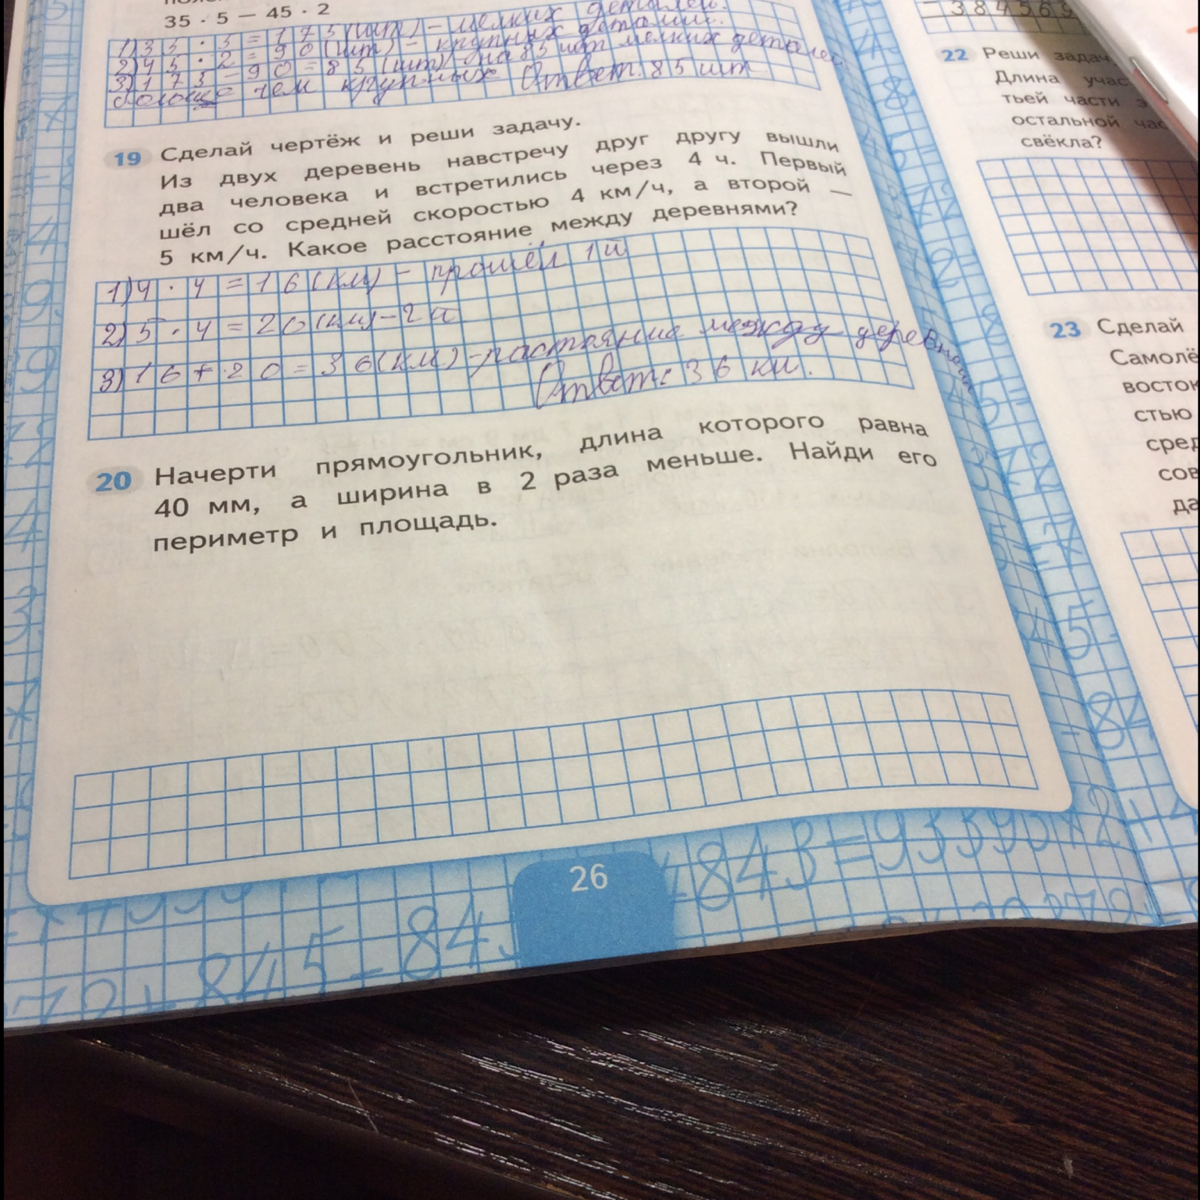 35 · 5 − 45 · 2
1) 35 · 5 = 175 (шт) - мелких деталей.
2) 45 · 2 = 90 (шт) - крупных деталий.
3) 175 - 90 = 85 (шт) на 85 шт мелких деталей
больше чем крупных Ответ: 85 шт
19 Сделай чертёж и реши задачу.
Из двух деревень навстречу друг другу вышли
два человека и встретились через 4 ч. Первый
шёл со средней скоростью 4 км/ч, а второй —
5 км/ч. Какое расстояние между деревнями?
1) 4 · 4 = 16 (км) - прошёл 1 п
2) 5 · 4 = 20 (км) - 2 п
3) 16 + 20 = 36 (км) - растояние между деревнями
Ответ: 36 км.
20 Начерти прямоугольник, длина которого равна
40 мм, а ширина в 2 раза меньше. Найди его
периметр и площадь.
26
384569
22 Реши задач
Длина учас
тьей части з
остальной час
свёкла?
23 Сделай
Самолё
восток
стью
сред
сов
да